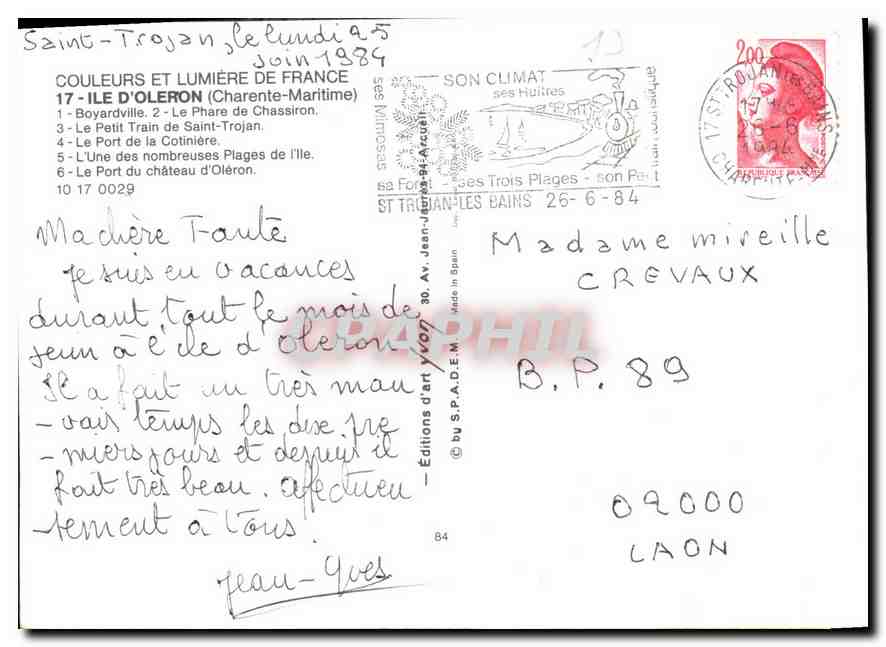 Saint-Trojan, le lundi 25
Juin 1984
COULEURS ET LUMIÈRE DE FRANCE
17 - ILE D'OLERON (Charente-Maritime)
1 - Boyardville. 2 - Le Phare de Chassiron.
3 - Le Petit Train de Saint-Trojan.
4 - Le Port de la Cotinière.
5 - L'Une des nombreuses Plages de l'Ile.
6 - Le Port du château d'Oléron.
10 17 0029
Ma chère Tante
Je suis en vacances
durant tout le mois de
jeun à l'ile d'Oleron,
Il a fait un très mau
-vais temps les dix pre
-miers jours et depuis il
fait très beau. affectueu
-sement à tous
Jean-Yves
SON CLIMAT
ses Huîtres
ses Mimosas
sa Forêt - ses Trois Plages - son Petit
Train touristique
ST TROJAN-LES BAINS 26-6-84
2,00
17 ST TROJAN LES BAINS
26-6
1984
CHARENTE-MME
REPUBLIQUE FRANÇAISE
— Éditions d'art yvon, 30, Av. Jean-Jaurès-94-Arcueil
© by S.P.A.D.E.M. Made in Spain
84
CPAPHIL
Madame mireille
CREVAUX
B.P. 89
02000
LAON